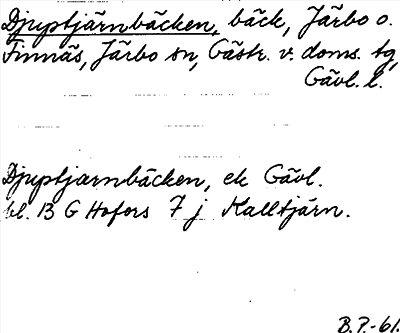 Djuptjärnbäcken, bäck, Järbo o.
Finnäs, Järbo sn, Gästr. v. doms. tg,
Gävl. l.
Djuptjärnbäcken, ek Gävl.
bl. 13 G Hofors 7 j Kalltjärn.
B.P.-61.